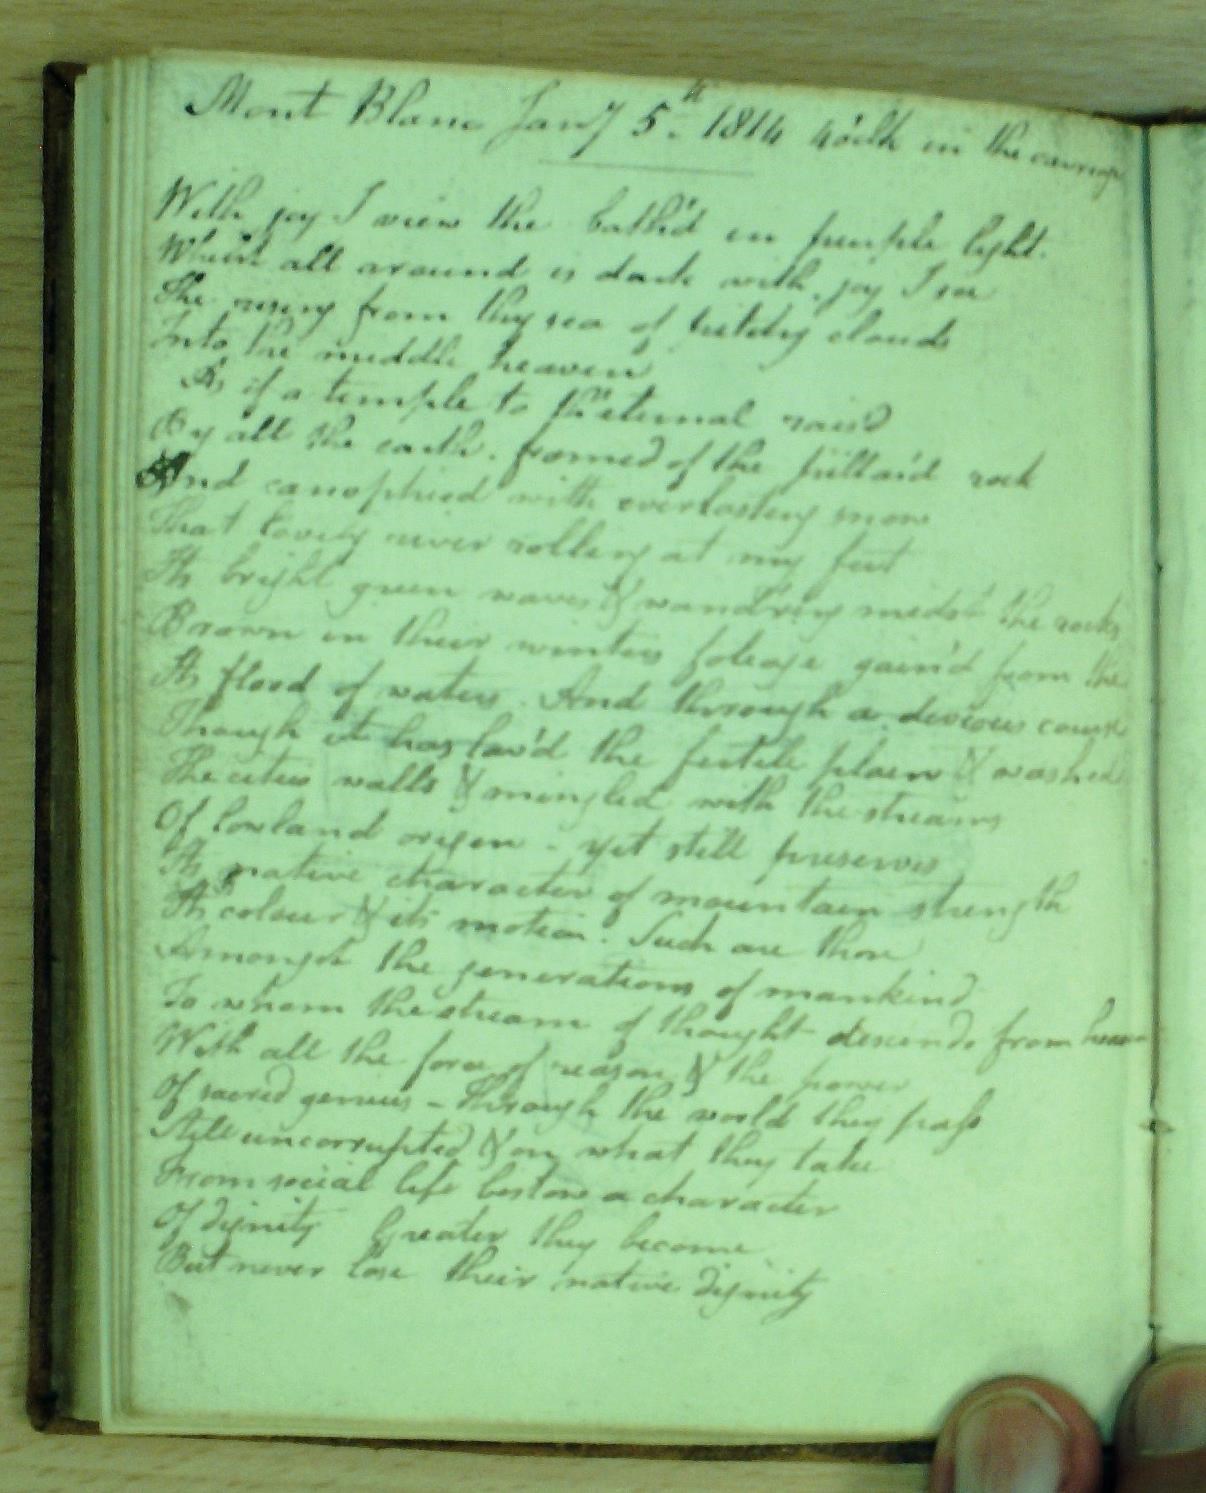 Mont Blanc Jany 5th 1814 4 oclk in the carriage
With joy I view the bath'd in purple light.
Whilst all around is dark with joy I see
The rising from thy sea of clouds
Into the middle heaven
As if a temple to th' eternal rais'd
By all the earth. framed of the pillard rock
And canophied with everlasting snow
That lovely river rolling at my feet
Its bright green waves & wandring midst the rocks
Brown in their winters foleage gain'd from the
Its flood of waters. And through a devious course
Though it has lav'd the fertile plain & washed
The cities walls & mingled with the streams
Of lowland origen - yet still preserves
Its native character of mountain strength
Its colour & its motion. Such are those
Amongst the generations of mankind
To whom the stream of thought descends from heaven
With all the force of reason & the power
Of sacred genius - through the world they pass
Still uncorrupted & on what they take
From social life bestow a character
Of dignity Greater they become
But never lose their native dignity